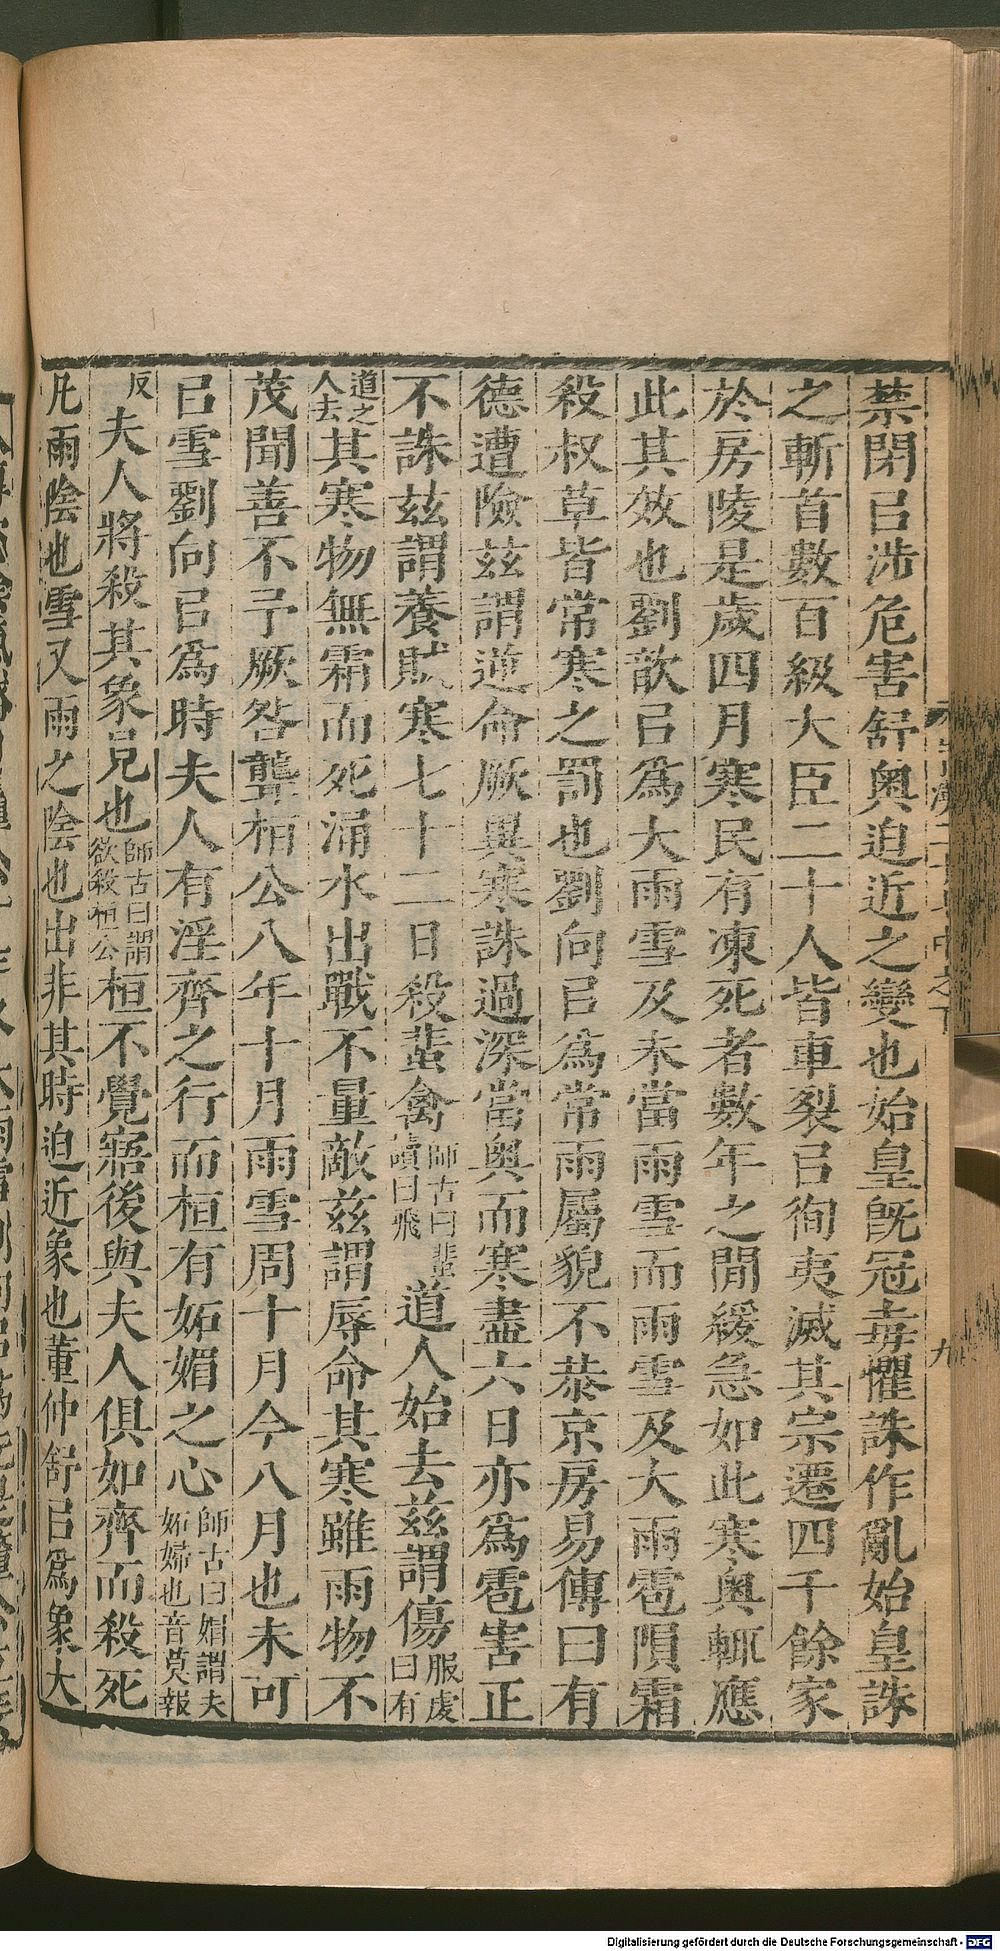 禁閉㠯涉危害舒奧迫近之變也始皇旣冠毐懼誅作亂始皇誅
之斬首數百級大臣二十人皆車裂㠯徇夷滅其宗遷四千餘家
於房陵是歲四月寒民有凍死者數年之閒緩急如此寒奧輒應
此其效也劉歆㠯爲大雨雪及未當雨雪而雨雪及大雨雹隕霜
殺叔草皆常寒之罰也劉向㠯爲常雨屬貌不恭京房易傳曰有
德遭險兹謂逆命厥異寒誅過深當奧而寒盡六日亦爲雹害正
不誅兹謂養賊寒七十二日殺蜚禽師古曰蜚讀曰飛道人始去兹謂傷服虔曰有
道之人去其寒物無霜而死涌水出戰不量敵兹謂辱命其寒雖雨物不
茂聞善不予厥咎聾桓公八年十月雨雪周十月今八月也未可
㠯雪劉向㠯爲時夫人有淫齊之行而桓有妬媢之心師古曰媢謂夫妬婦也音莫報
反夫人將殺其象見也師古曰謂欲殺桓公桓不覺寤後與夫人俱如齊而殺死
凡雨陰也雪又雨之陰也出非其時迫近象也董仲舒㠯爲象大
九
Digitalisierung gefördert durch die Deutsche Forschungsgemeinschaft - DFG